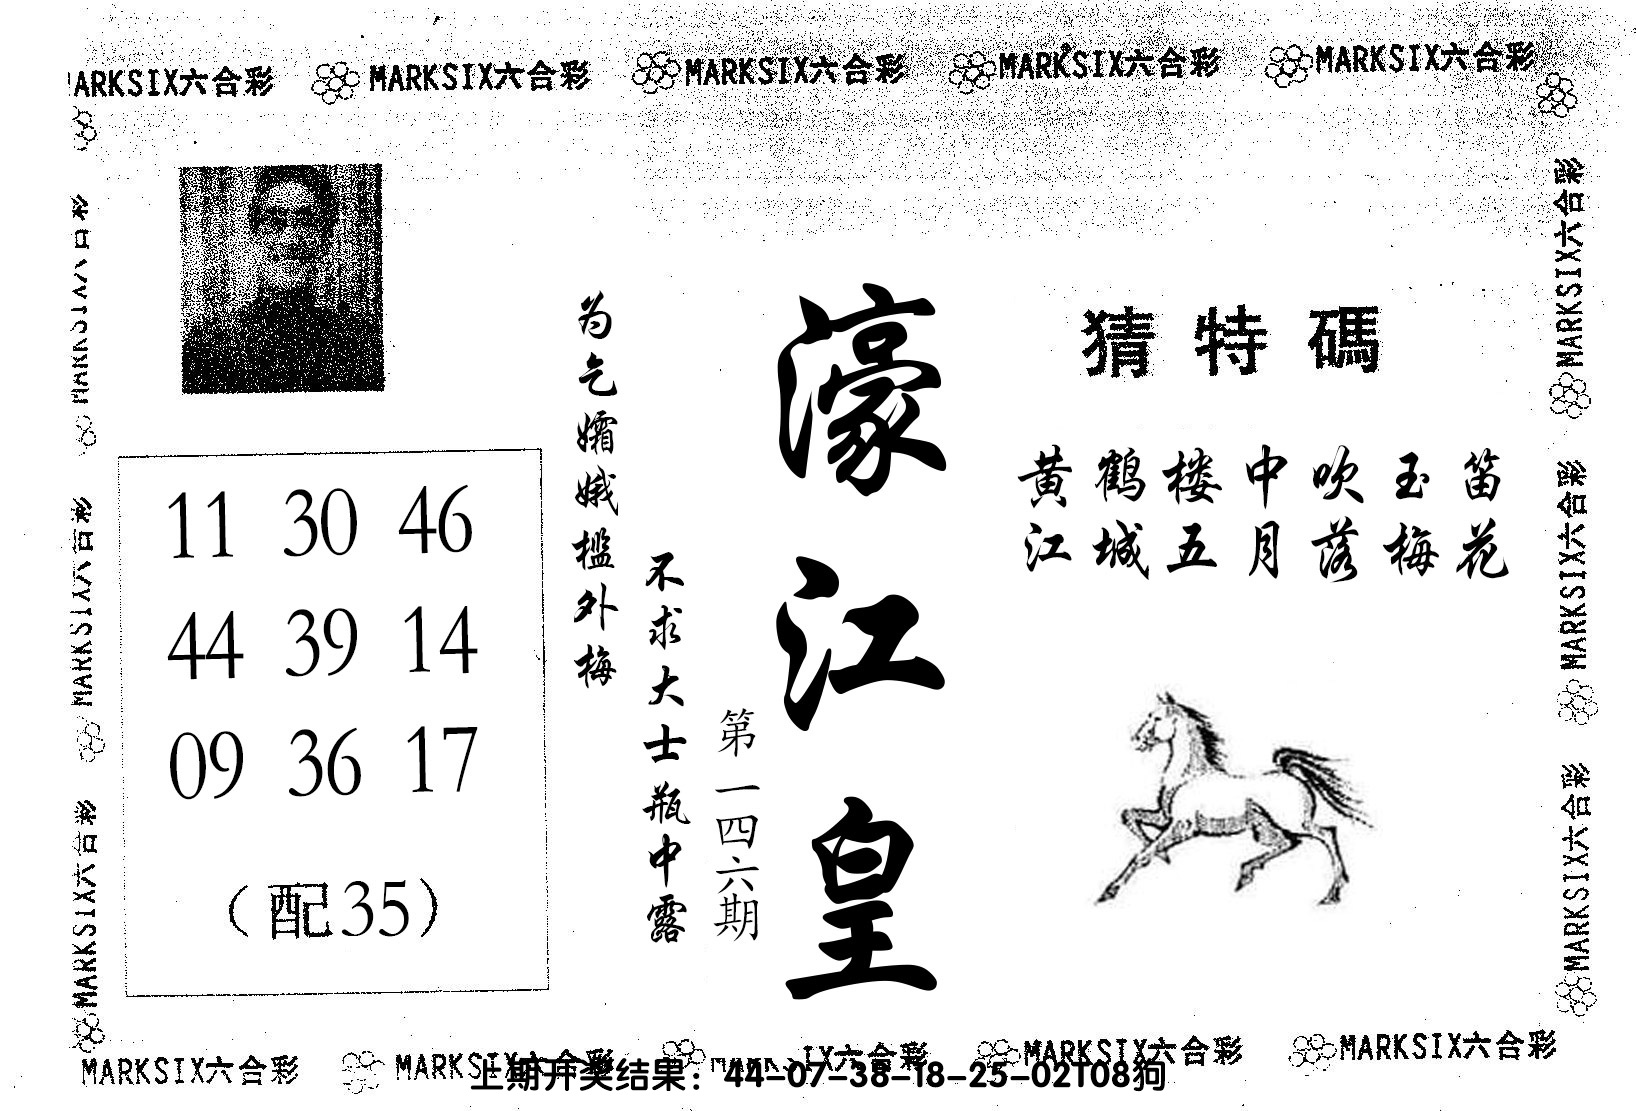 MARKSIX六合彩 MARKSIX六合彩 MARKSIX六合彩 MARKSIX六合彩 MARKSIX六合彩
MARKSIX六合彩
MARKSIX六合彩
MARKSIX六合彩
猜特碼
黄鹤楼中吹玉笛
江城五月落梅花
濠江皇
第一四六期
不求大士瓶中露
为乞孀娥槛外梅
11 30 46
44 39 14
09 36 17
(配35)
MARKSIX六合彩
MARKSIX六合彩
MARKSIX六合彩
MARKSIX六合彩 MARKSIX六合彩 MARKSIX六合彩 MARKSIX六合彩 MARKSIX六合彩
上期开奖结果：44-07-38-18-25-02T08狗